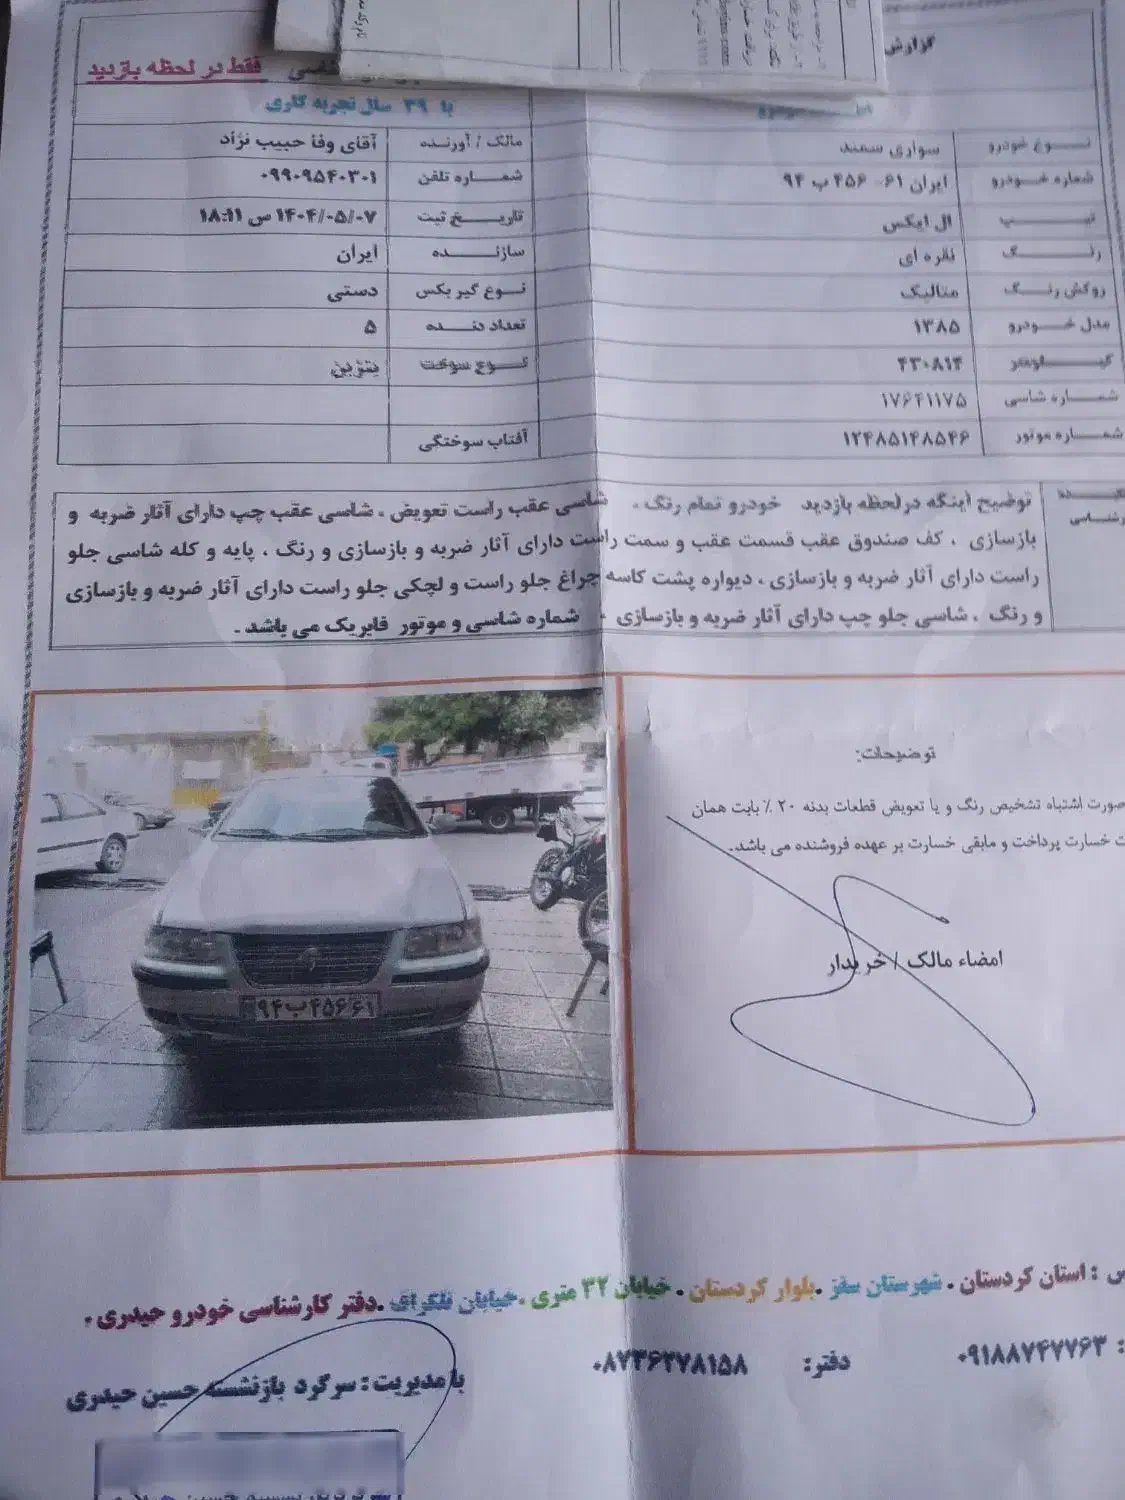 گزارش
فقط در لحظه بازدید
با ۳۹ سال تجربه کاری
نوع خودرو سواری سمند مالک / آورنده آقای وفا حبیب نژاد
شماره خودرو ایران ۶۱- ۴۵۶ ب ۹۴ شماره تلفن ۰۹۹۰۹۵۴۰۳۰۱
تیپ ال ایکس تاریخ ثبت ۱۴۰۴/۰۵/۰۷ س ۱۸:۱۱
رنگ نقره ای سازنده ایران
روکش رنگ متالیک نوع گیر بکس دستی
مدل خودرو ۱۳۸۵ تعداد دنده ۵
کیلومتر ۴۳۰۸۱۴ نوع سوخت بنزین
شماره شاسی ۱۷۶۴۱۱۷۵
شماره موتور ۱۲۴۸۵۱۴۸۵۴۶ آفتاب سوختگی
توضیح اینکه در لحظه بازدید خودرو تمام رنگ ، شاسی عقب راست تعویض ، شاسی عقب چپ دارای آثار ضربه و
بازسازی ، کف صندوق عقب قسمت عقب و سمت راست دارای آثار ضربه و بازسازی و رنگ ، پایه و کله شاسی جلو
راست دارای آثار ضربه و بازسازی ، دیواره پشت کاسه چراغ جلو راست و لچکی جلو راست دارای آثار ضربه و بازسازی
و رنگ ، شاسی جلو چپ دارای آثار ضربه و بازسازی ، شماره شاسی و موتور فابریک می باشد .
توضیحات:
صورت اشتباه تشخیص رنگ و یا تعویض قطعات بدنه ۲۰ ٪ بابت همان
خسارت پرداخت و مابقی خسارت بر عهده فروشنده می باشد.
امضاء مالک / خریدار
۹۴ ب ۴۵۶ ۶۱
س : استان کردستان . شهرستان سقز .بلوار کردستان . خیابان ۳۲ متری .خیابان تلگراف .دفتر کارشناسی خودرو حیدری .
: ۰۹۱۸۸۷۴۷۷۶۳ دفتر: ۰۸۷۳۶۲۷۸۱۵۸
با مدیریت : سرگرد بازنشسته حسین حیدری